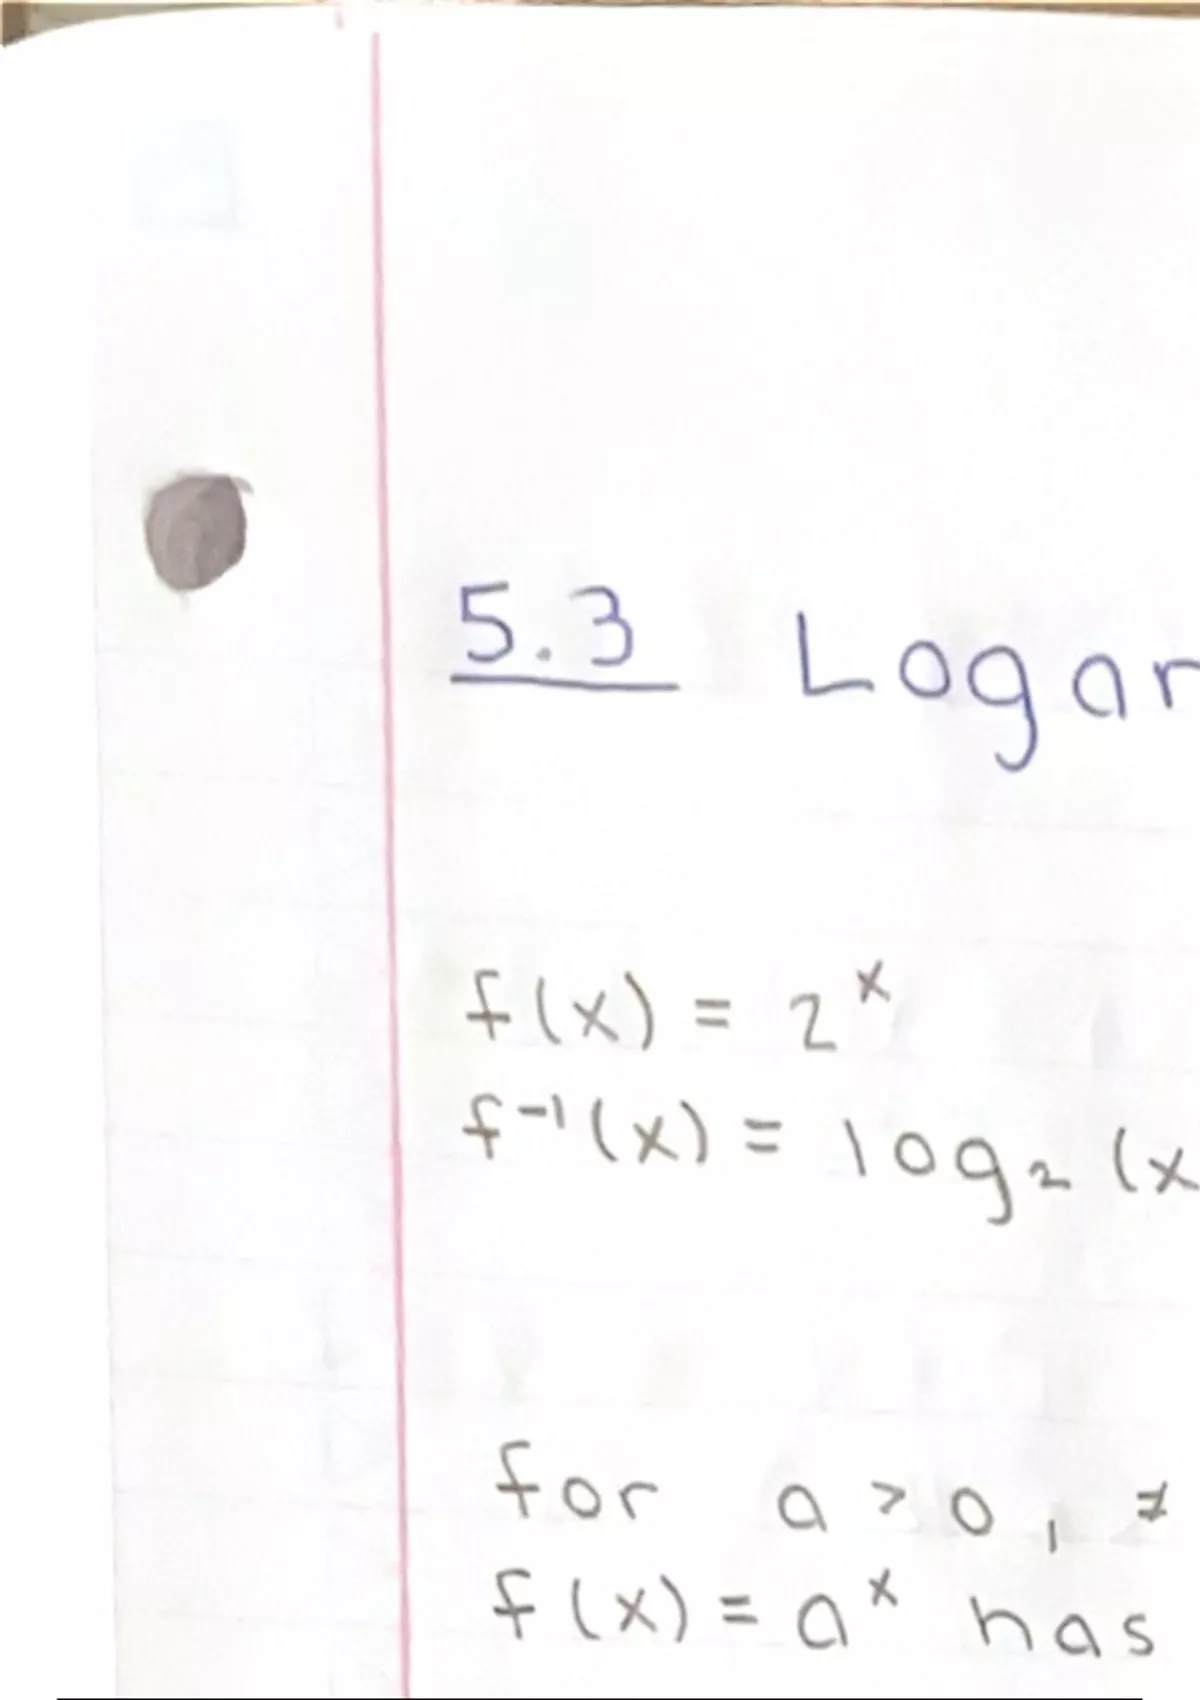 5.3 Logar
f(x) = 2ˣ
f⁻¹(x) = log₂ (x
for a > 0, ≠
f(x) = aˣ has